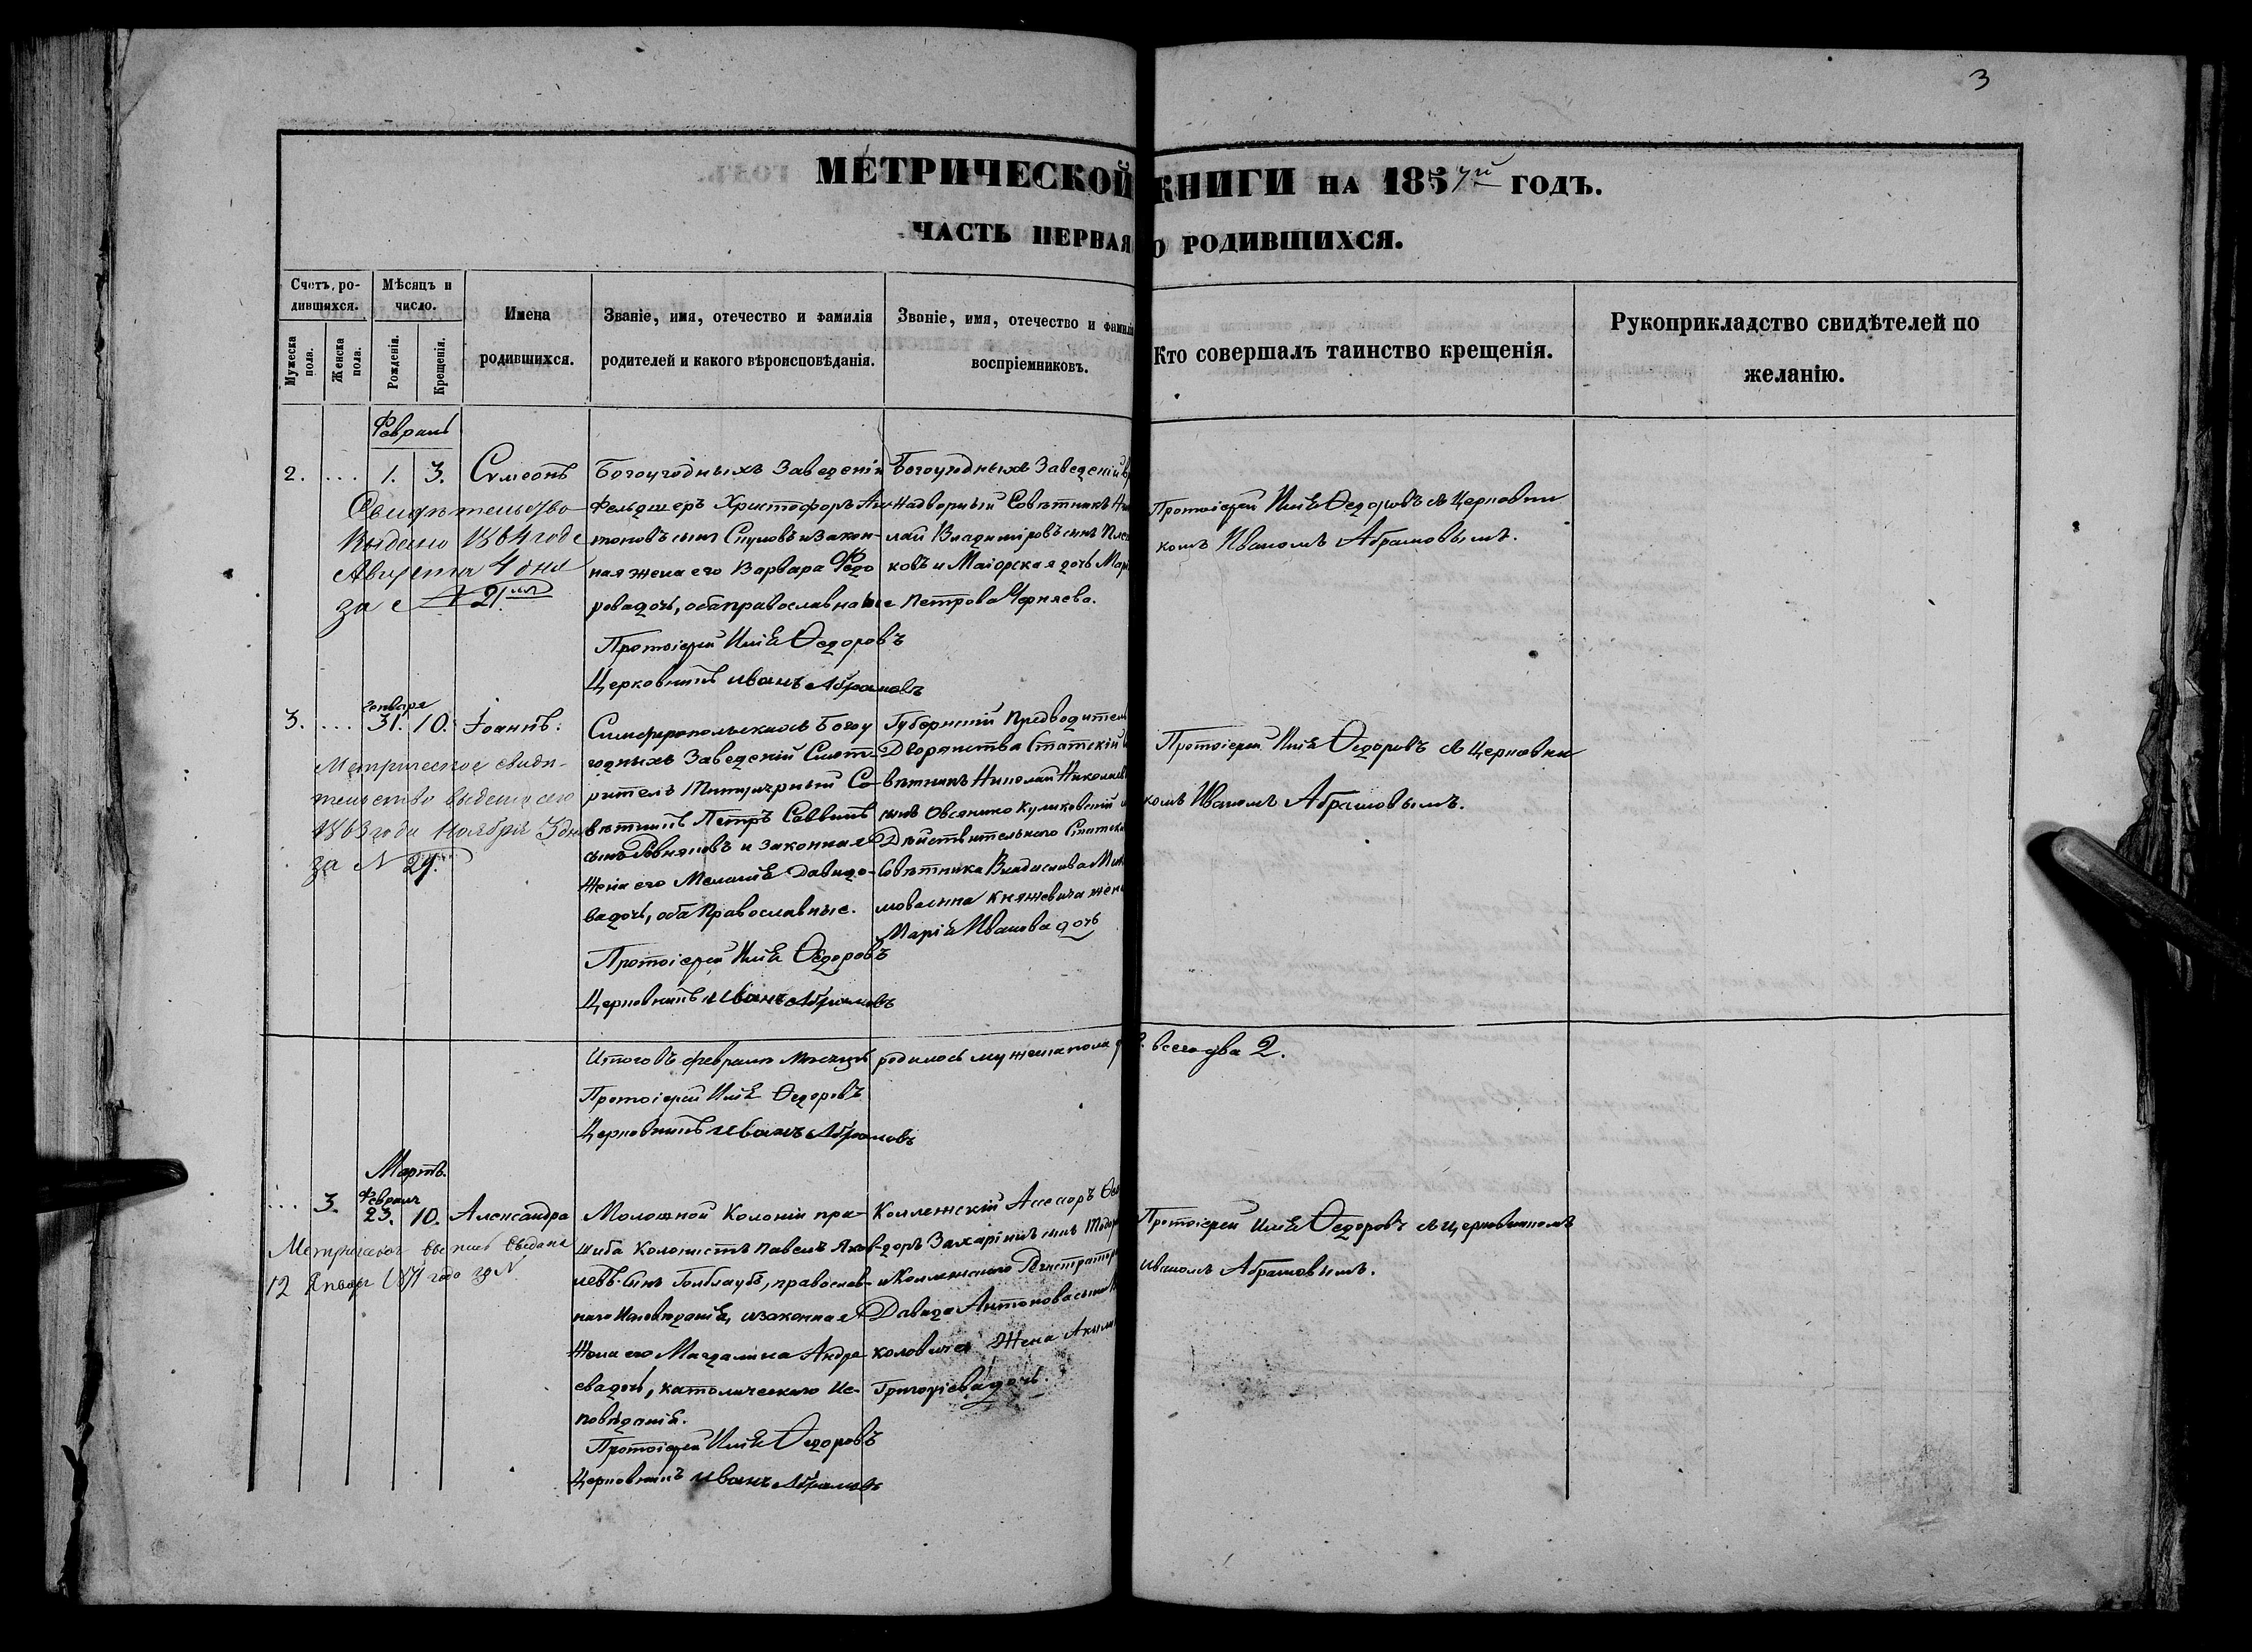 3
МЕТРИЧЕСКОЙ КНИГИ НА 1857й ГОДЪ.
ЧАСТЬ ПЕРВАЯ О РОДИВШИХСЯ.
Счетъ родившихся.
Мужеска пола.
Женска пола.
Мѣсяцъ и число.
Рожденія.
Крещенія.
Имена родившихся.
Званіе, имя, отечество и фамилія родителей и какого вѣроисповѣданія.
Званіе, имя, отечество и фамилія воспріемниковъ.
Кто совершалъ таинство крещенія.
Рукоприкладство свидѣтелей по желанію.
Февраль
2. ... 1. 3. Симеонъ
Свидѣтельство
выдано 1864 года
Августа 4 дня
за № 21
Богоугодныхъ Заведеній
Фельдшеръ Христофоръ Ан-
тоновъ сынъ и закон-
ная жена его Варвара Федо
рова дочь, оба православные
Протоіерей Илія Ѳедоровъ
Церковникъ Иванъ Абрамовъ
Богоугодныхъ Заведеній
Надворный Совѣтникъ
лай Владиміровъ сынъ
ковъ и Маіорская дочь
Петрова Черняева.
Протоіерей Илія Ѳедоровъ съ Церковни
комъ Иваномъ Абрамовымъ.
Генваря
3. ... 31. 10. Іоаннъ.
Метрическое свидѣ-
тельство выдано
1863 года Ноября 3 дня
за № 29.
Симферопольскихъ Богоу
годныхъ Заведеній Смот-
ритель Титулярный Со-
вѣтникъ Петръ Саввинъ
сынъ и законная
жена его Меланія Давидо-
ва дочь, оба Православные.
Протоіерей Илія Ѳедоровъ
Церковникъ Иванъ Абрамовъ
Губернскій Предводитель
Дворянства Статскій
вѣтникъ Николай Николаев
сынъ Овсянико Куликовскій
Дѣйствительнаго Статска
Совѣтника Владислава
Княжевича жена
Марія Иванова дочь
Протоіерей Илія Ѳедоровъ съ Церковни
комъ Иваномъ Абрамовымъ.
Итого въ февралѣ мѣсяцѣ родилось мужеска пола всего два 2.
Протоіерей Илія Ѳедоровъ
Церковникъ Иванъ Абрамовъ
Мартъ.
Февраля
... 3. 23. 10. Александра
Метрическая выпись выдана
12 Января 1871 года за №
Молочной Колоніи при-
шиба Колонистъ Павелъ Яков-
левъ сынъ Готлаубъ, православ-
наго Исповѣданія, и законная
жена его Магдалина Андре
ева дочь, католическаго Ис-
повѣданія.
Протоіерей Илія Ѳедоровъ
Церковникъ Иванъ Абрамовъ
Коллежскій Ассесоръ Ѳео
доръ Захаріинъ сынъ
и Коллежскаго Регистратора
Давида Антонова сына
жена
Григоріева дочь.
Протоіерей Илія Ѳедоровъ съ Церковникомъ
Иваномъ Абрамовымъ.